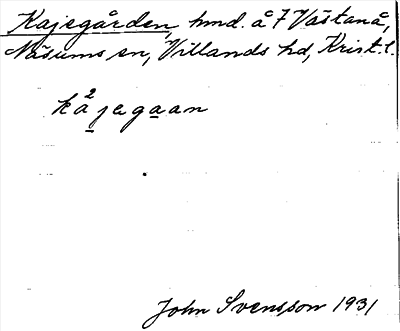 Kajegården, hmd. å 7 Västanå,
Näsums sn, Villands hd, Krist. l.
kà²jegaan
John Svensson 1931